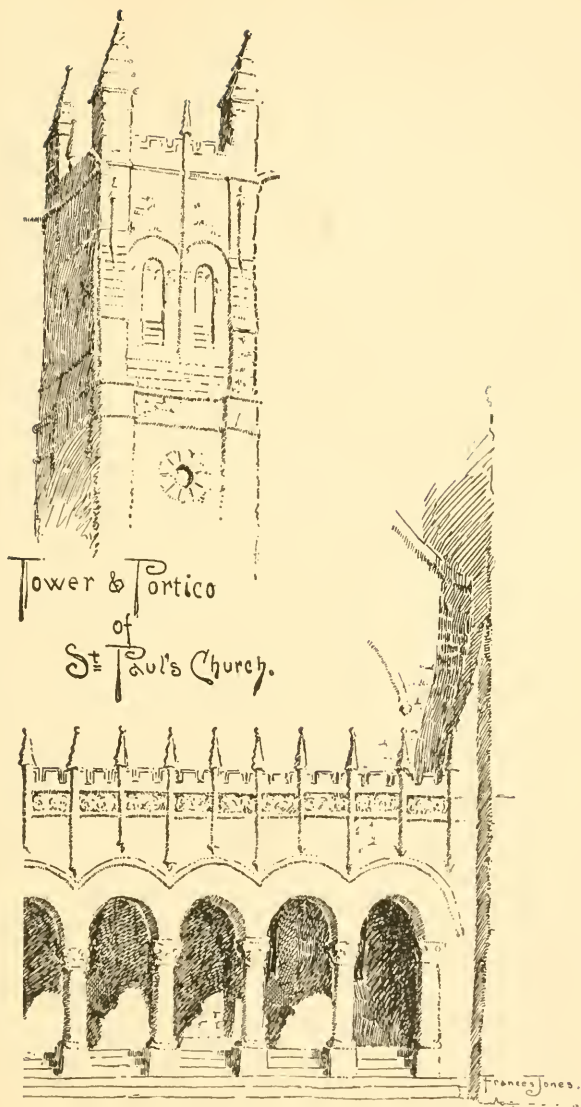 Tower & Portico
of
St Paul's Church.
Frances Jones.